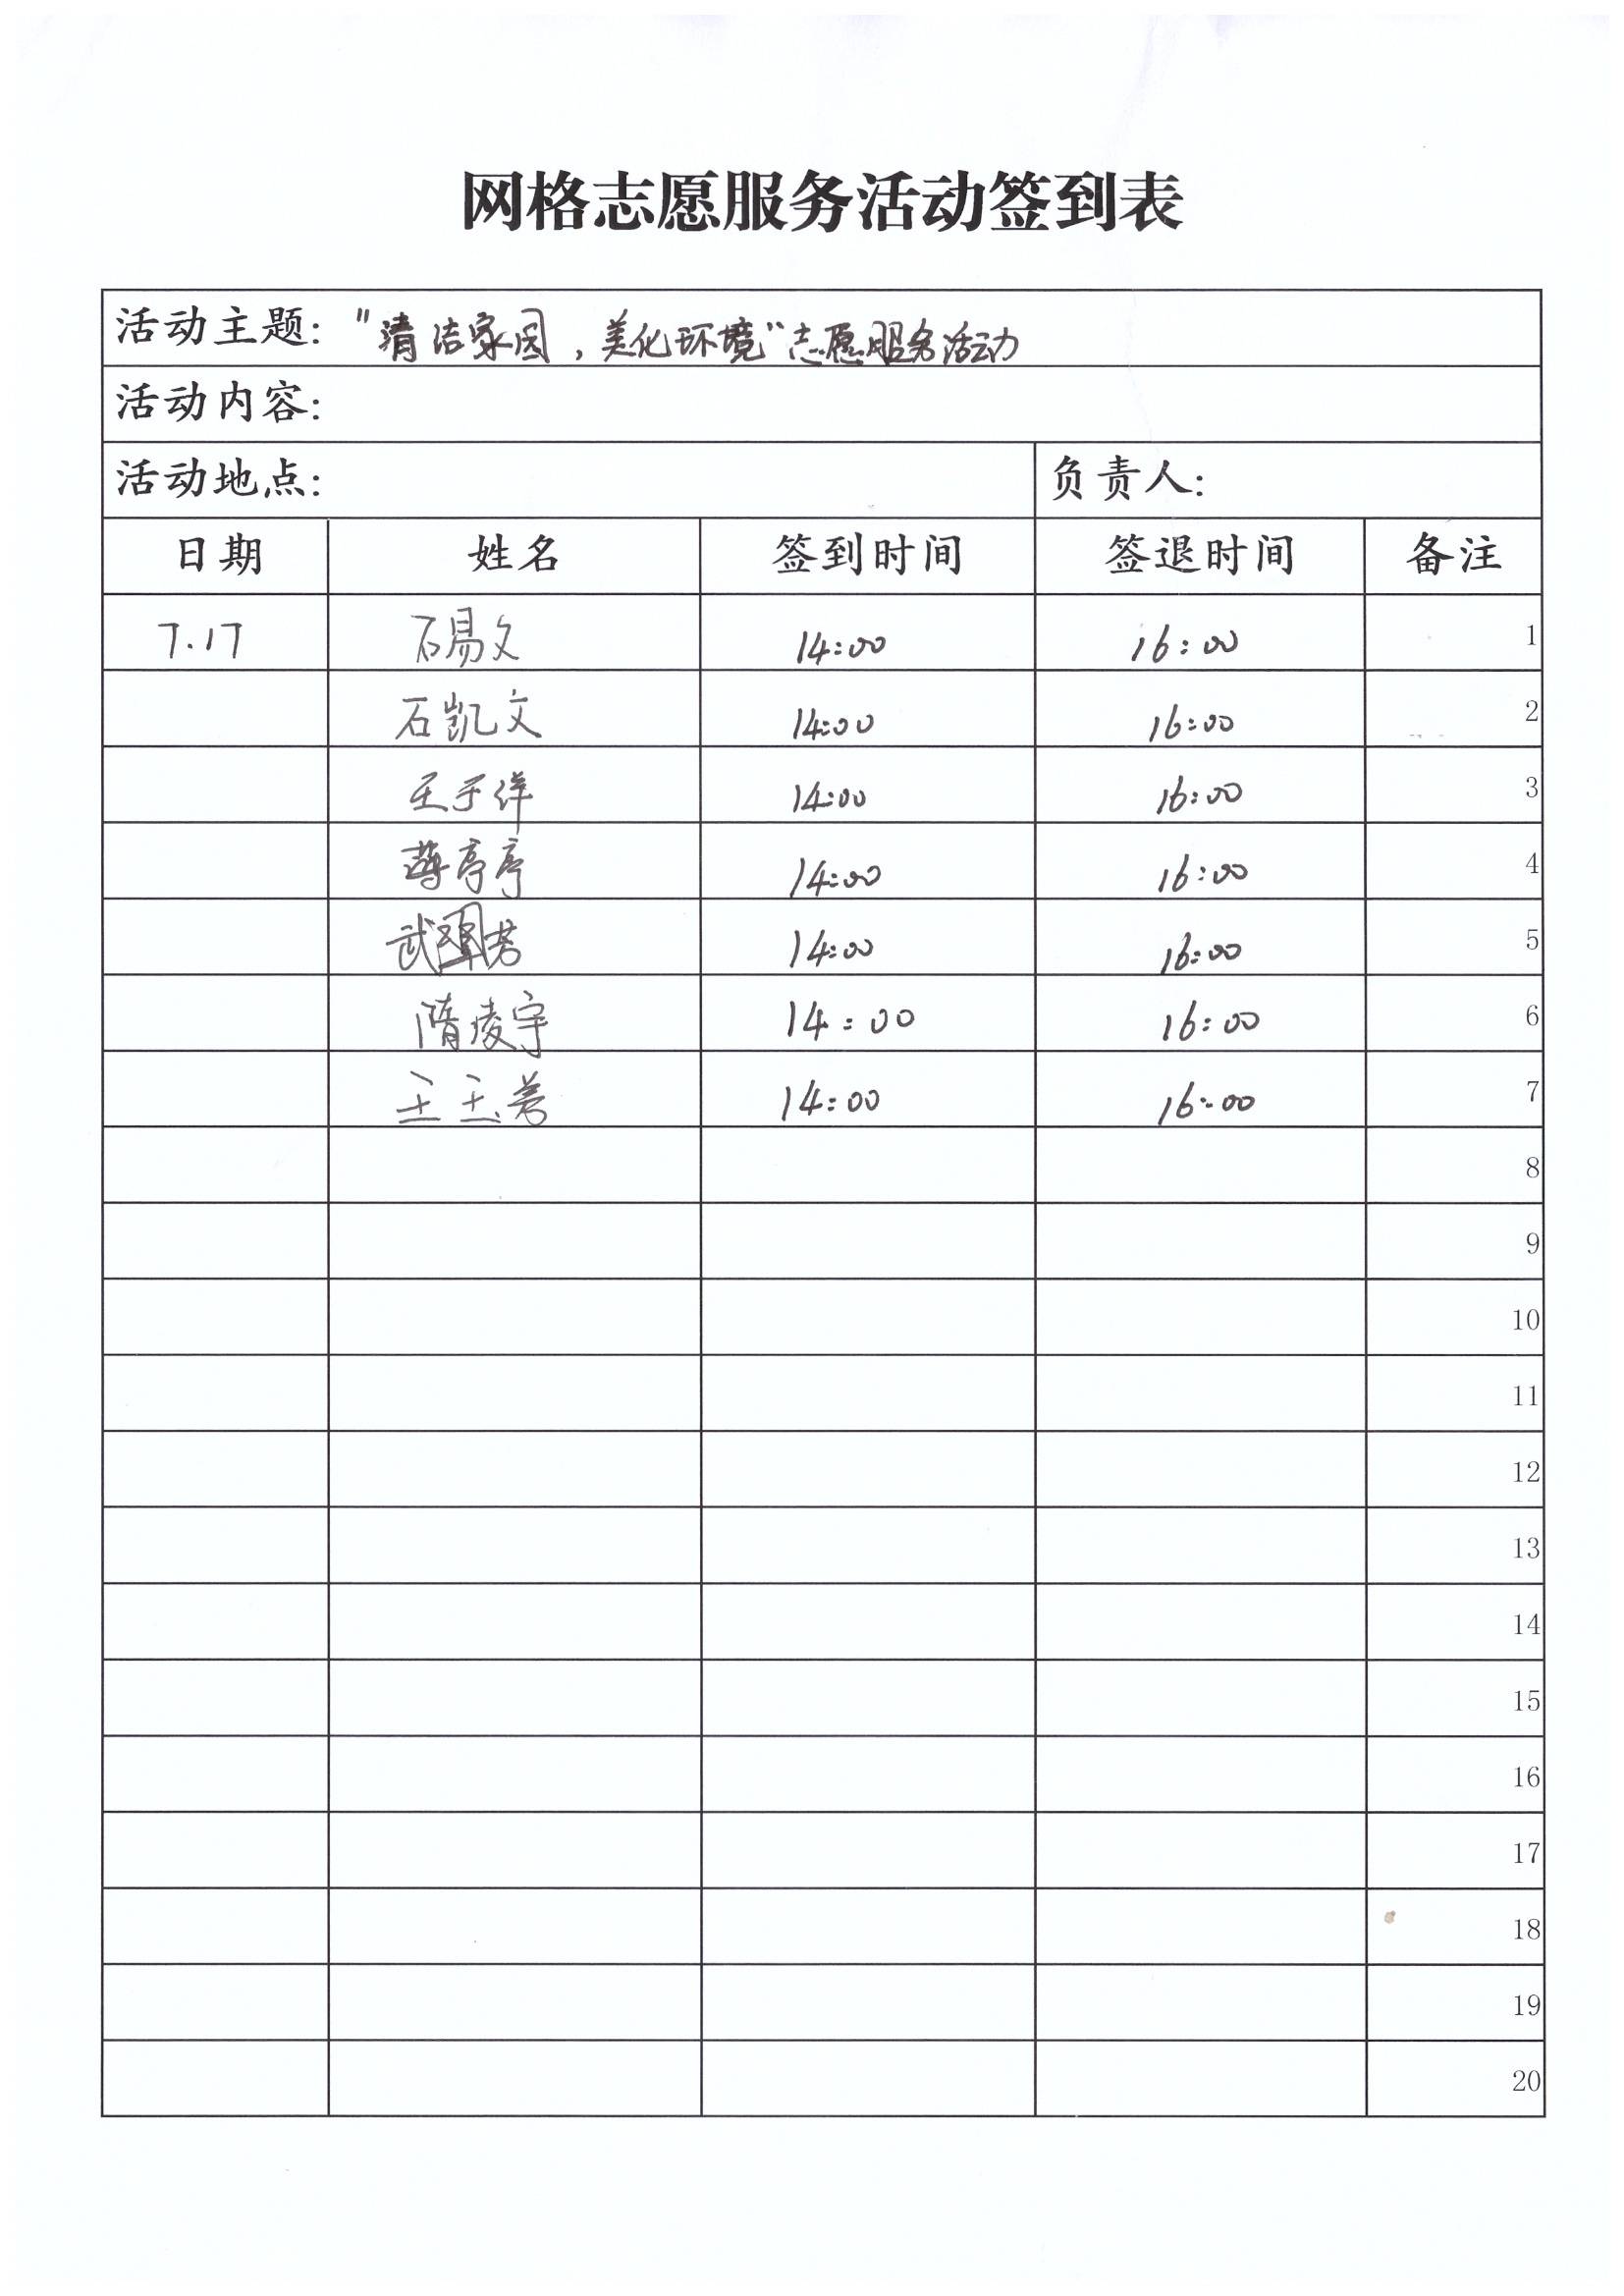 网格志愿服务活动签到表
活动主题: "清洁家园,美化环境"志愿服务活动
活动内容:
活动地点: 负责人:
日期 姓名 签到时间 签退时间 备注
7.17 石易文 14:00 16:00 1
石凯文 14:00 16:00 2
王于洋 14:00 16:00 3
薄亭亭 14:00 16:00 4
14:00 16:00 5
隋凌宇 14:00 16:00 6
14:00 16:00 7
8
9
10
11
12
13
14
15
16
17
18
19
20